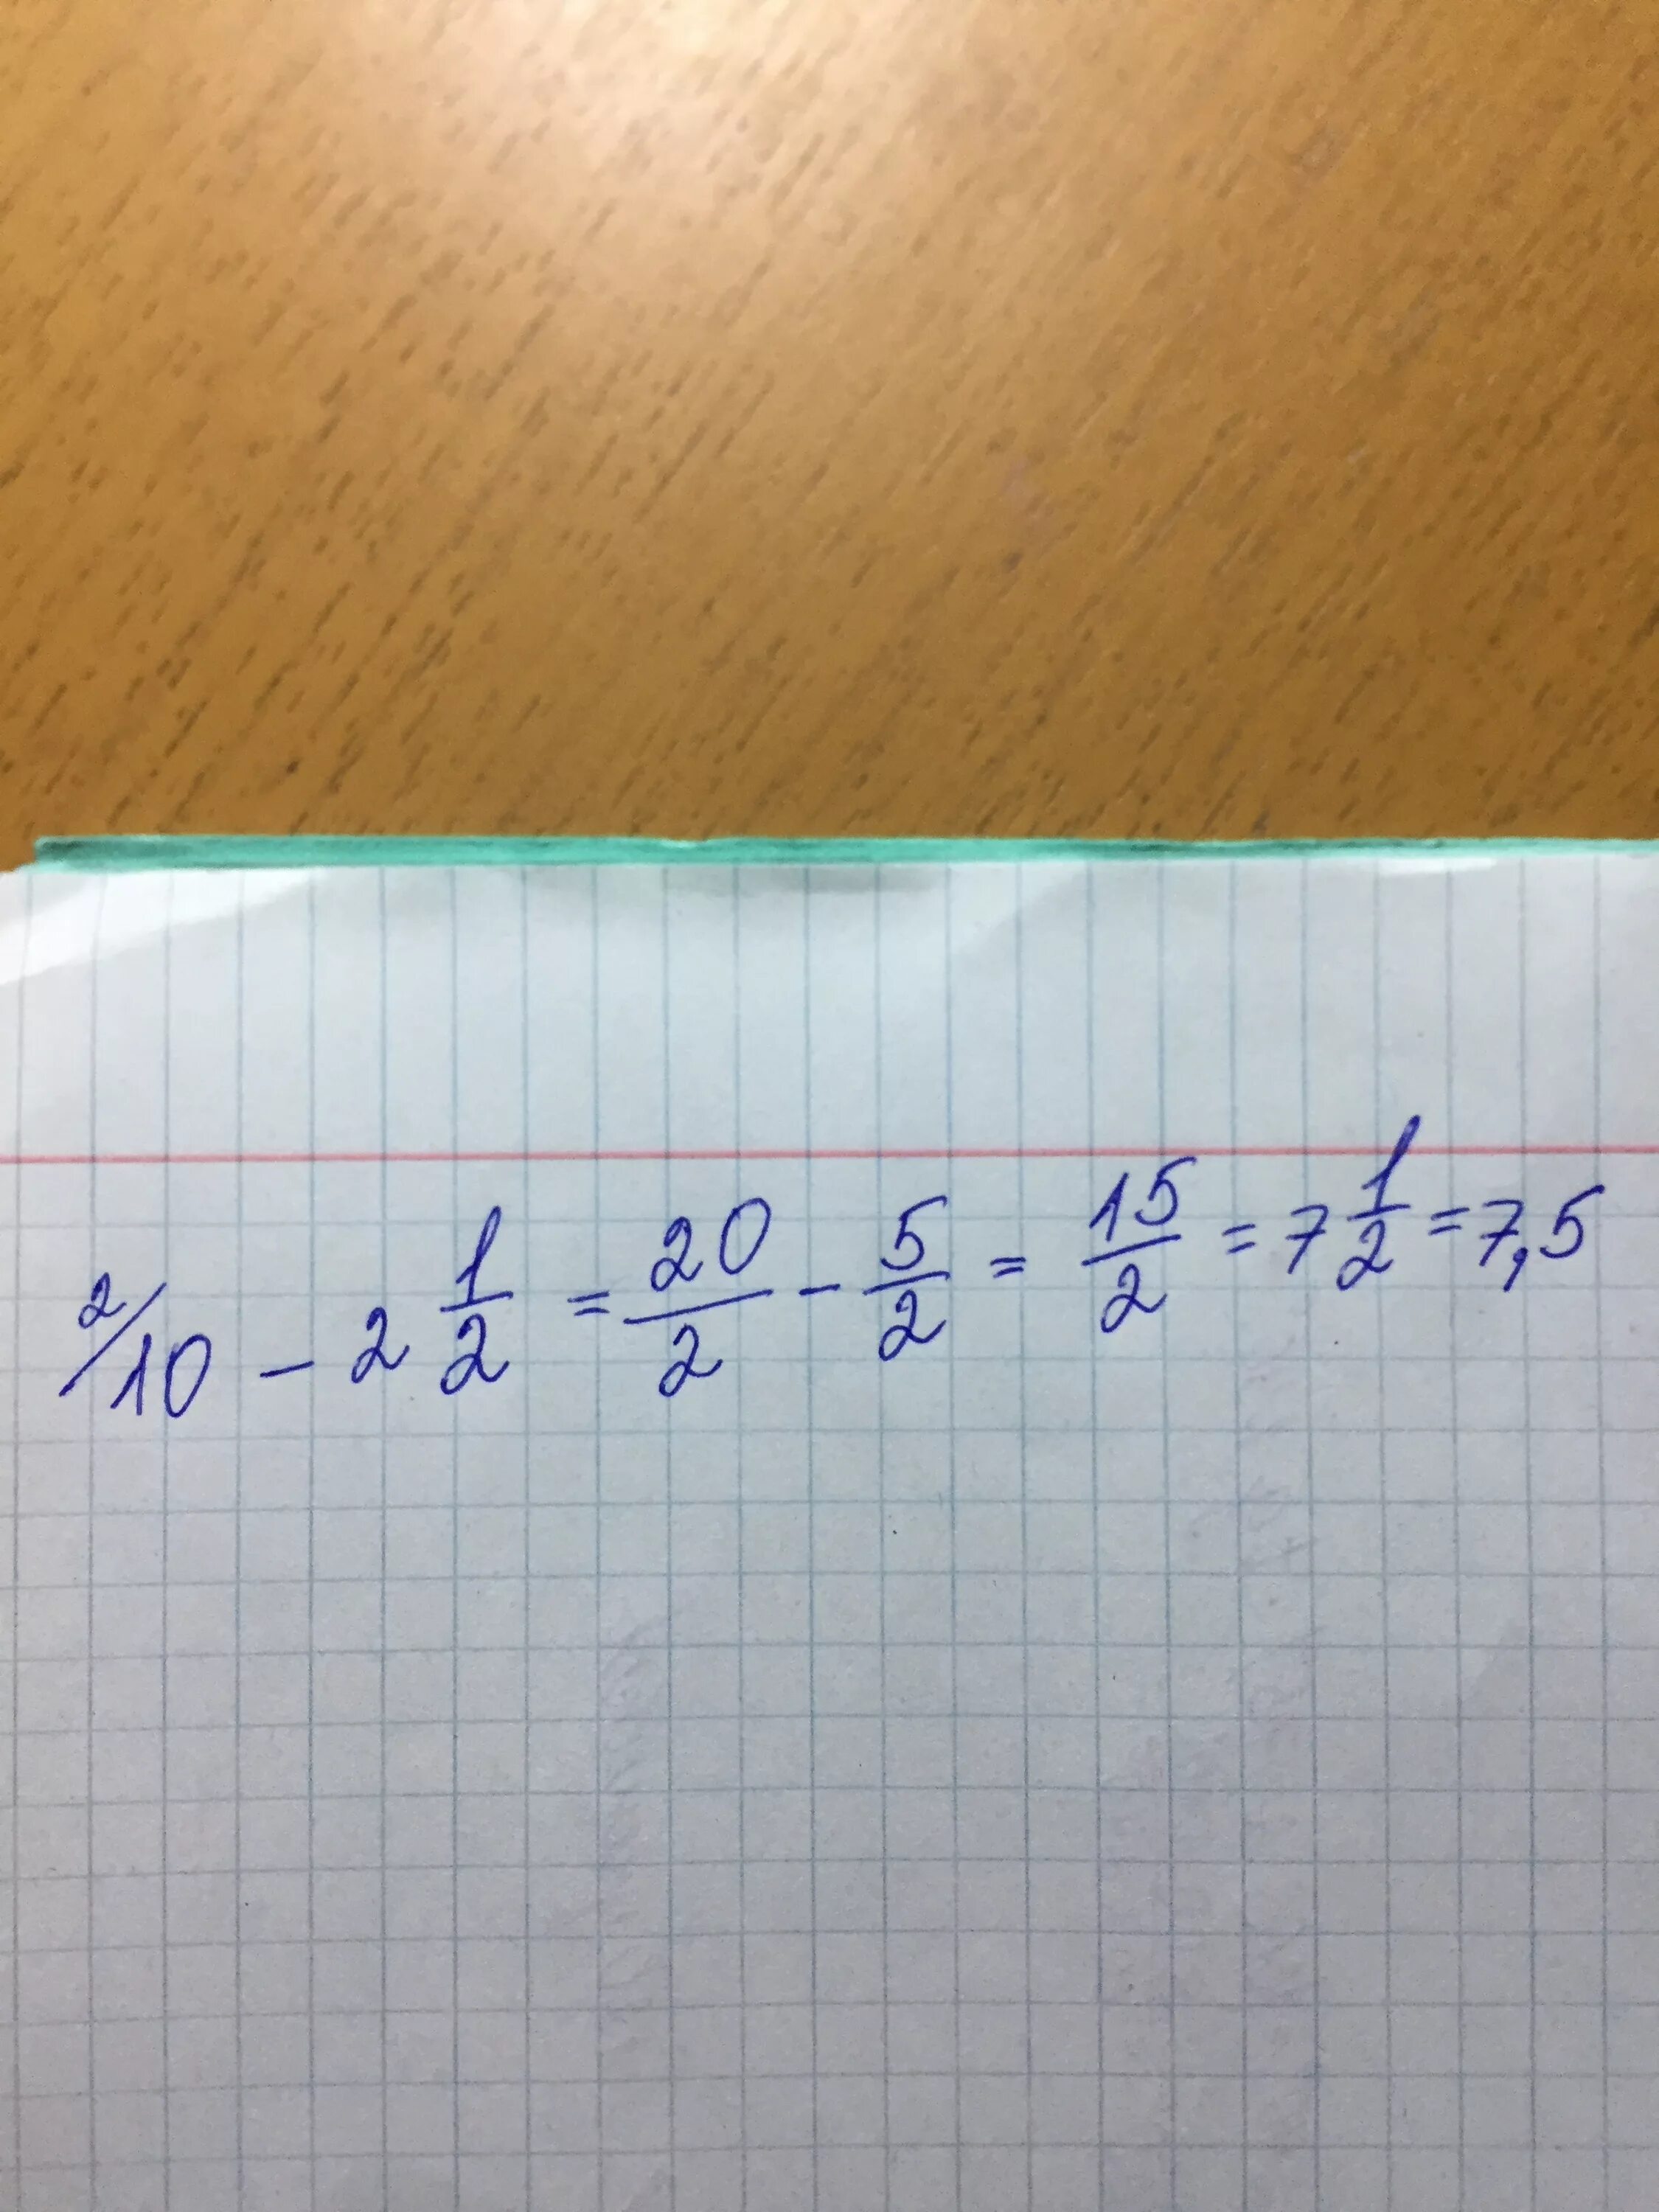 2/10 - 2 1/2 = 20/2 - 5/2 = 15/2 = 7 1/2 = 7,5